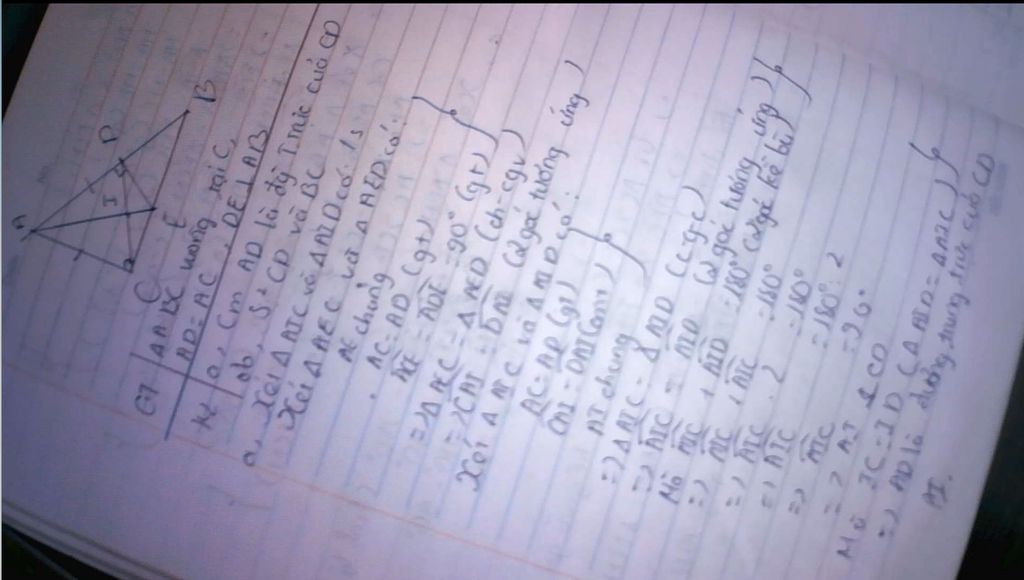 A
D
I
B
C
E
GT ΔABC vuông tại C,
AD = AC, DE ⊥ AB
KL a, Cm AD là đg Trực của CD
b, S² CD và BC
a, Xét ΔAIC và ΔAID có: 
Xét ΔAEC và ΔAED có:
AE chung
AC = AD (gt)
ACE = ADE = 90° (gt)
=> ΔAEC = ΔAED (ch-cgv)
=> CAI = DAI (2 góc tương ứng)
Xét ΔAIC và ΔAID có:
AC = AD (gt)
CAI = DAI (cmt)
AI chung
=> ΔAIC = ΔAID (c-g-c)
=> AIC = AID (2 góc tương ứng)
Mà AIC + AID = 180° (2 góc kề bù)
=> AIC + AIC = 180°
=> AIC . 2 = 180°
=> AIC = 180° : 2
=> AIC = 90°
=> AI ⊥ CD
Mà IC = ID (ΔAID = ΔAIC)
=> AD là đường trung trực của CD
AI.